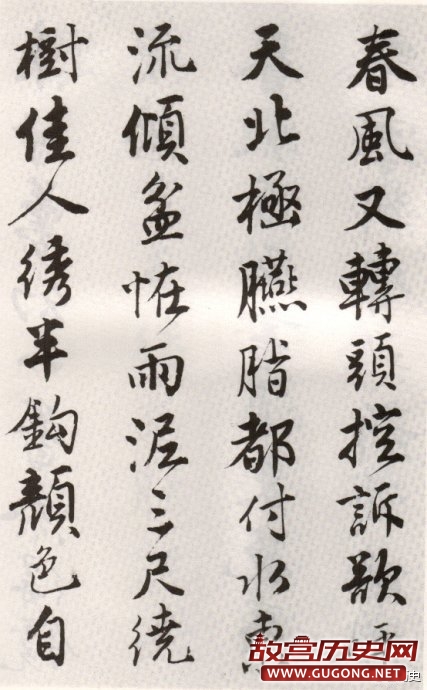 春風又轉頭控訴欲
天北極臙脂都付水東
流傾盆怪雨泥三尺繞
樹佳人綉半鈎顏色自
故宫历史网
WWW.GUGONG.NET
史